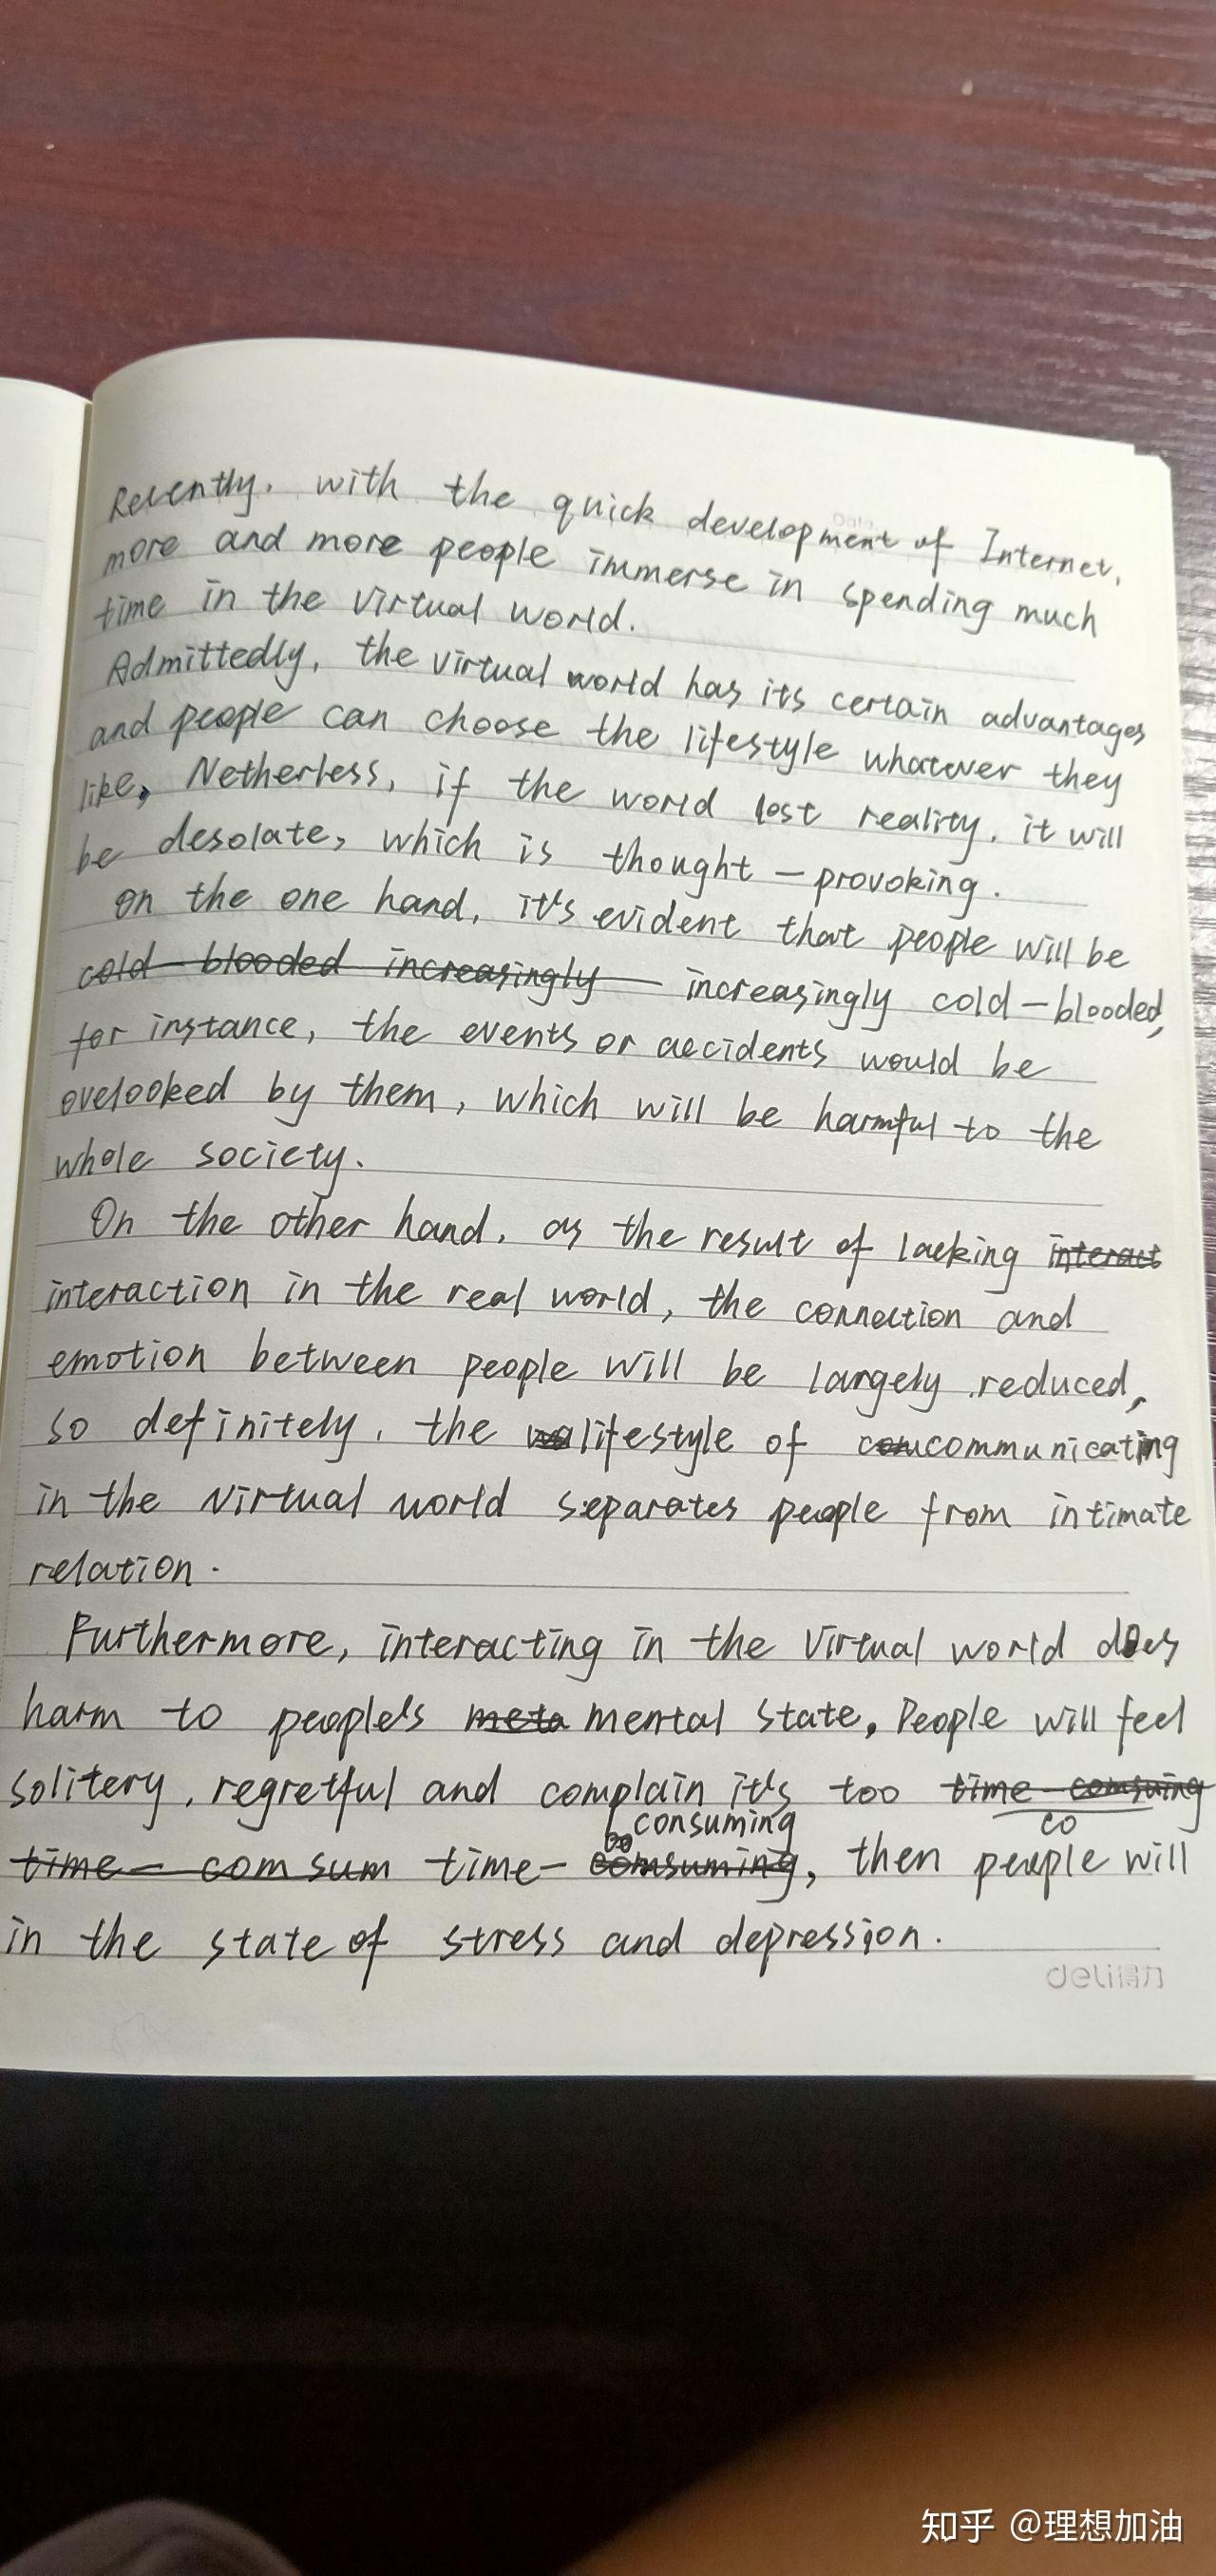 Recently, with the quick development of Internet,
more and more people immerse in spending much
time in the virtual world.
Admittedly, the virtual world has its certain advantages
and people can choose the lifestyle whatever they
like, Netherless, if the world lost reality, it will
be desolate, which is thought-provoking.
on the one hand, it's evident that people will be
cold-blooded increasingly increasingly cold-blooded,
for instance, the events or accidents would be
ovelooked by them, which will be harmful to the
whole society.
On the other hand, as the result of lacking interact
interaction in the real world, the connection and
emotion between people will be largely reduced,
so definitely, the lifestyle of communicating
in the virtual world separates people from intimate
relation.
Furthermore, interacting in the virtual world does
harm to people's meta mental state, People will feel
solitery, regretful and complain it's too time-comsuing
co
consuming
time-comsum time-comsuming, then people will
in the state of stress and depression.
deli得力
知乎 @理想加油